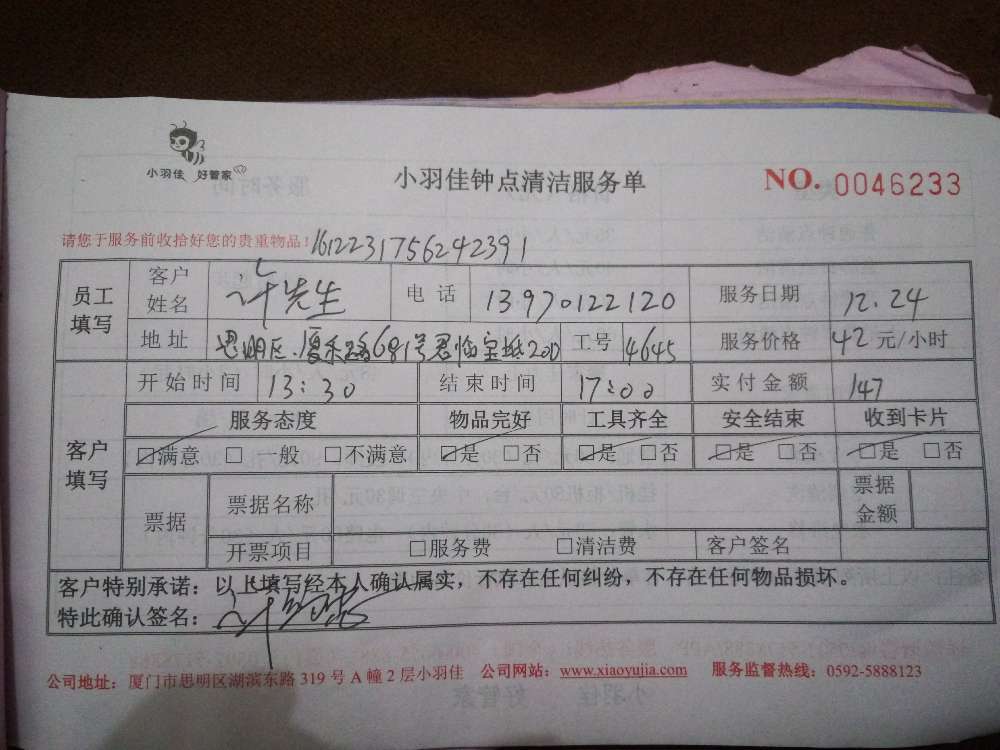 小羽佳 好管家
小羽佳钟点清洁服务单
NO. 0046233
请您于服务前收拾好您的贵重物品! 1612231756242391
员工填写 客户姓名 叶先生 电话 13970122120 服务日期 12.24
地址 思明区.厦禾路681号君临宝抵 工号 4645 服务价格 42 元/小时
开始时间 13:30 结束时间 17:00 实付金额 147
客户填写 服务态度 物品完好 工具齐全 安全结束 收到卡片
□满意 □ 一般 □不满意 □是 □否 □是 □否 □是 □否 □是 □否
票据 票据名称 票据金额
开票项目 □服务费 □清洁费 客户签名
客户特别承诺:以上填写经本人确认属实,不存在任何纠纷,不存在任何物品损坏。
特此确认签名:
公司地址:厦门市思明区湖滨东路 319 号 A 幢 2 层小羽佳 公司网站:www.xiaoyujia.com 服务监督热线:0592-5888123